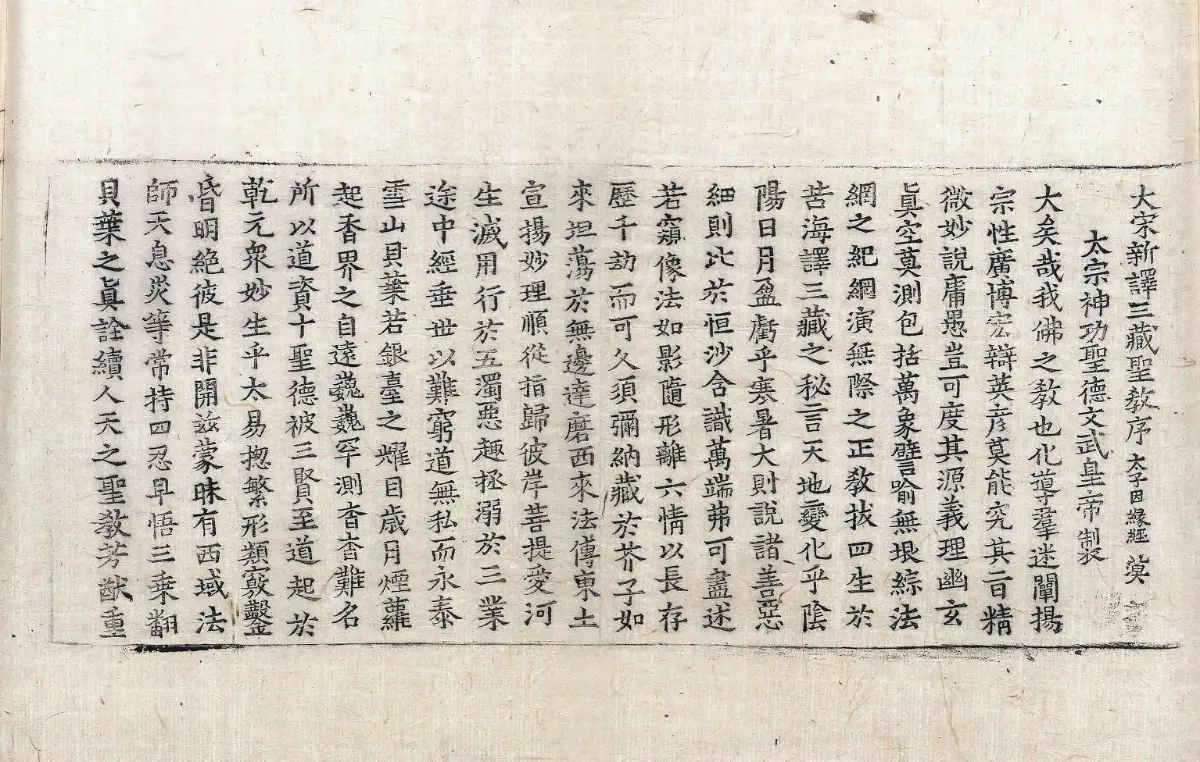 大宋新譯三藏聖教序 太子因緣經 漠
太宗神功聖德文武皇帝製
大矣哉我佛之教也化導羣迷闡揚
宗性廣博宏辯英彥莫能究其旨精
微妙說庸愚豈可度其源義理幽玄
眞空莫測包括萬象譬喻無垠綜法
網之紀綱演無際之正教拔四生於
苦海譯三藏之秘言天地變化乎陰
陽日月盈虧乎寒暑大則說諸善惡
細則比於恒沙含識萬端弗可盡述
若窺像法如影隨形離六情以長存
歷千劫而可久須彌納藏於芥子如
來坦蕩於無邊達磨西來法傳東土
宣揚妙理順從指歸彼岸菩提愛河
生滅用行於五濁惡趣拯溺於三業
途中經垂世以難窮道無私而永泰
雪山貝葉若銀臺之耀目歲月煙蘿
起香界之自遠巍巍罕測杳杳難名
所以道資十聖德被三賢至道起於
乾元衆妙生乎太易揔繁形類竅鑿
昏明絕彼是非開兹蒙昧有西域法
師天息災等常持四忍早悟三乘翻
貝葉之眞詮續人天之聖教芳猷重